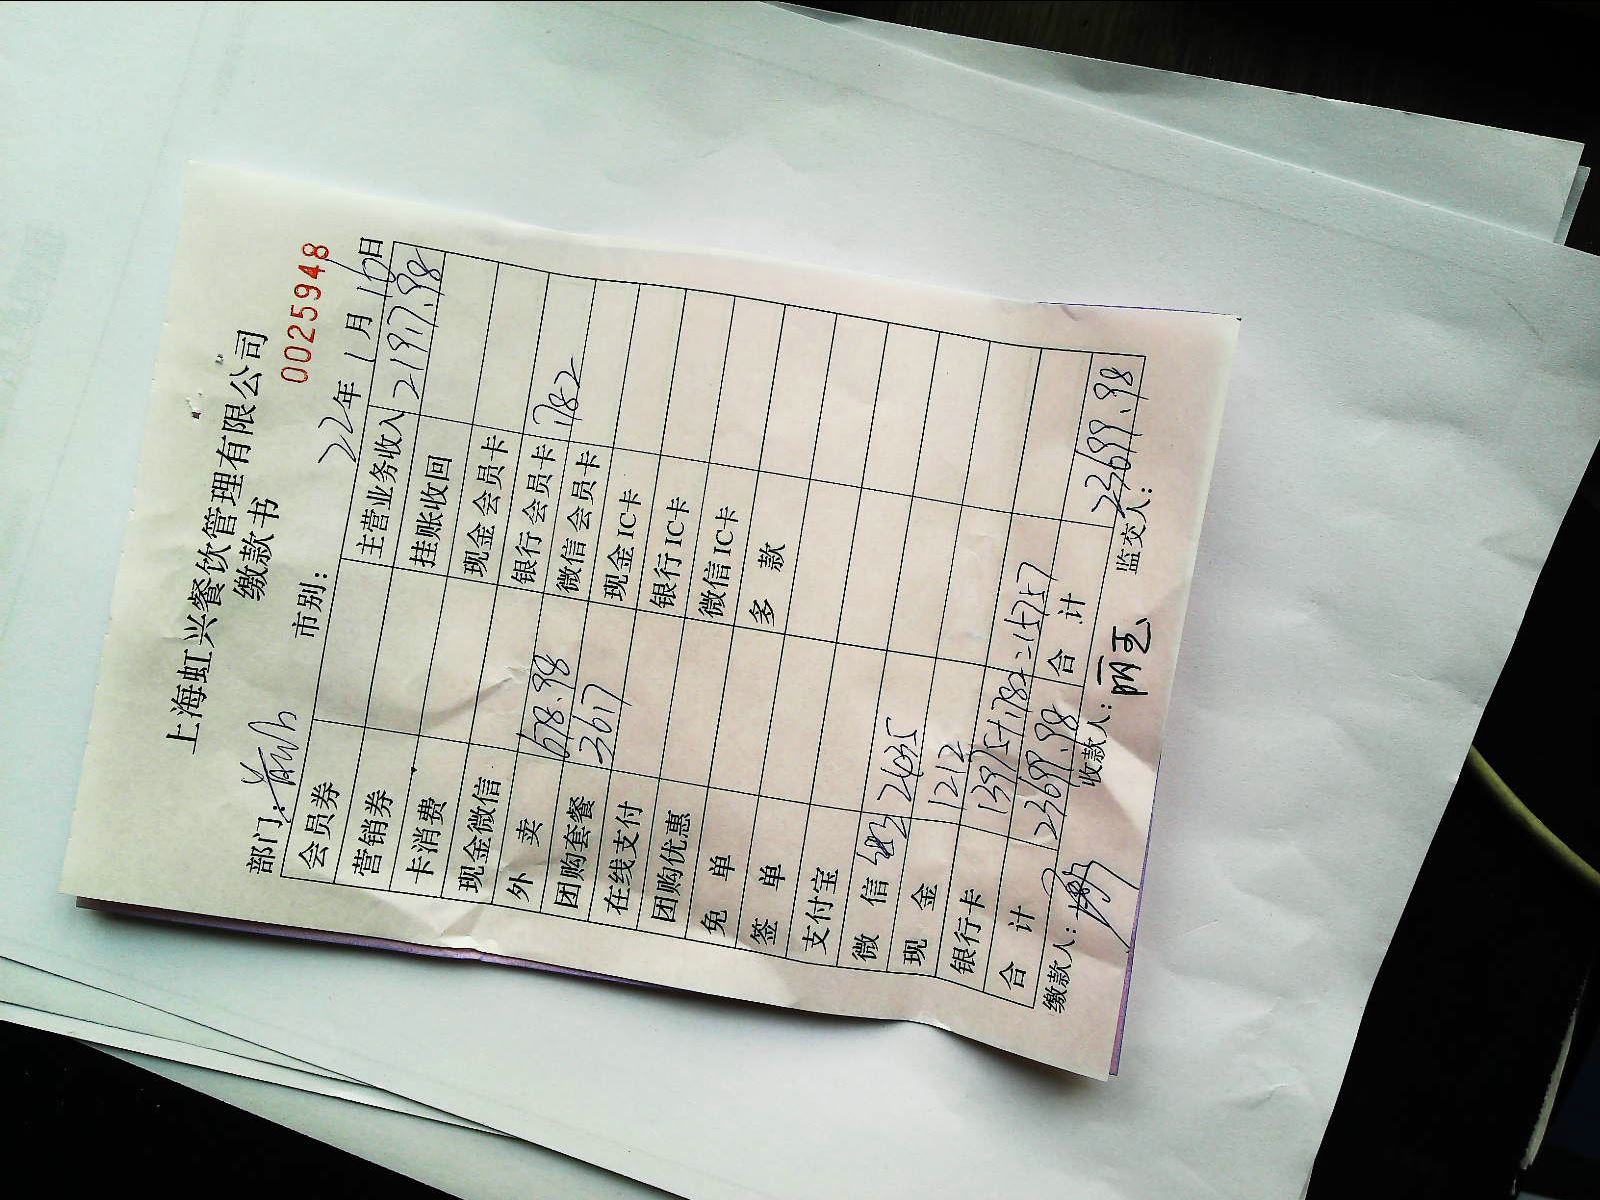 上海虹兴餐饮管理有限公司
缴款书
0025948
部门: 市别: 22年 1月 16日
会员券 主营业务收入 21917.98
营销券 挂账收回
卡消费 现金会员卡
现金微信 银行会员卡 1782
外卖 678.98 微信会员卡
团购套餐 3617 现金IC卡
在线支付 银行IC卡
团购优惠 微信IC卡
免单 多款
签单
支付宝
微信 2435
现金 1212
银行卡 13975+1782=15757
合计 23699.98 合计 23699.98
缴款人: 收款人: 监交人: